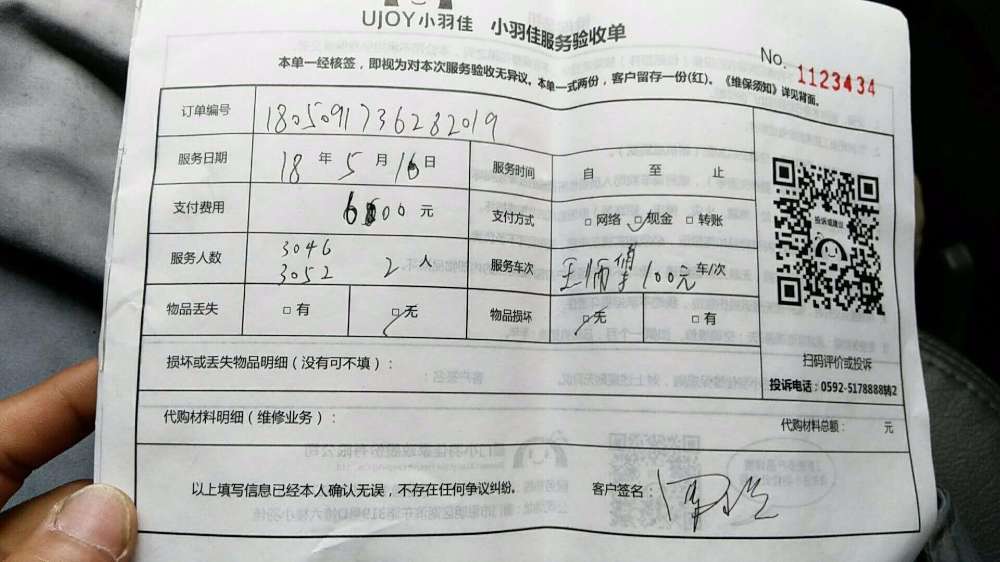 UJOY小羽佳 小羽佳服务验收单
No. 1123434
本单一经核签，即视为对本次服务验收无异议。本单一式两份，客户留存一份(红)。《维保须知》详见背面。
订单编号 1805091736282019
服务日期 18 年 5 月 16 日 服务时间 自 至 止
支付费用 00 元 支付方式 □ 网络 □ 现金 □ 转账
服务人数 3046
3052 2 人 服务车次 王师 100元 车/次
物品丢失 □ 有 □ 无 物品损坏 □ 无 □ 有
投诉或建议
扫码评价或投诉
投诉电话：0592-5178888转2
损坏或丢失物品明细（没有可不填）：
代购材料明细（维修业务）： 代购材料总额： 元
以上填写信息已经本人确认无误，不存在任何争议纠纷。 客户签名：